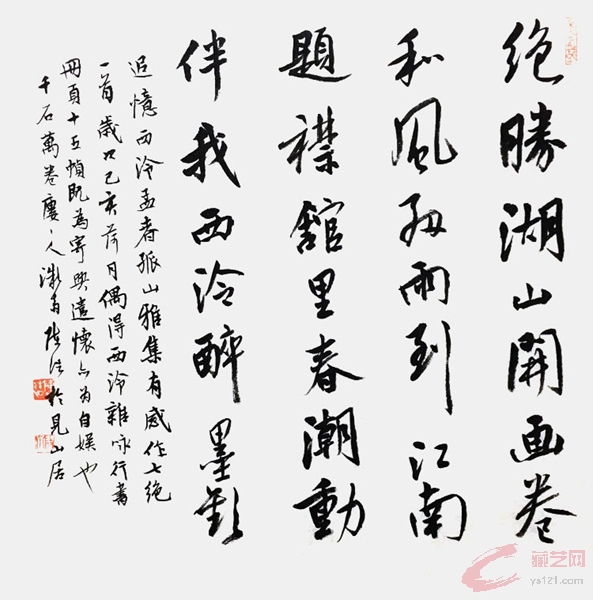 绝勝湖山開画卷
和風细雨到江南
題襟館里春潮動
伴我西泠醉墨
追憶西泠孟春孤山雅集有感作七绝
一首歲次己亥荷月偶得西泠雜咏行書
冊頁十五幀既為寄興遣懷亦為自娱也
千石萬卷廔主人於見山居
藏艺网
ys121.com